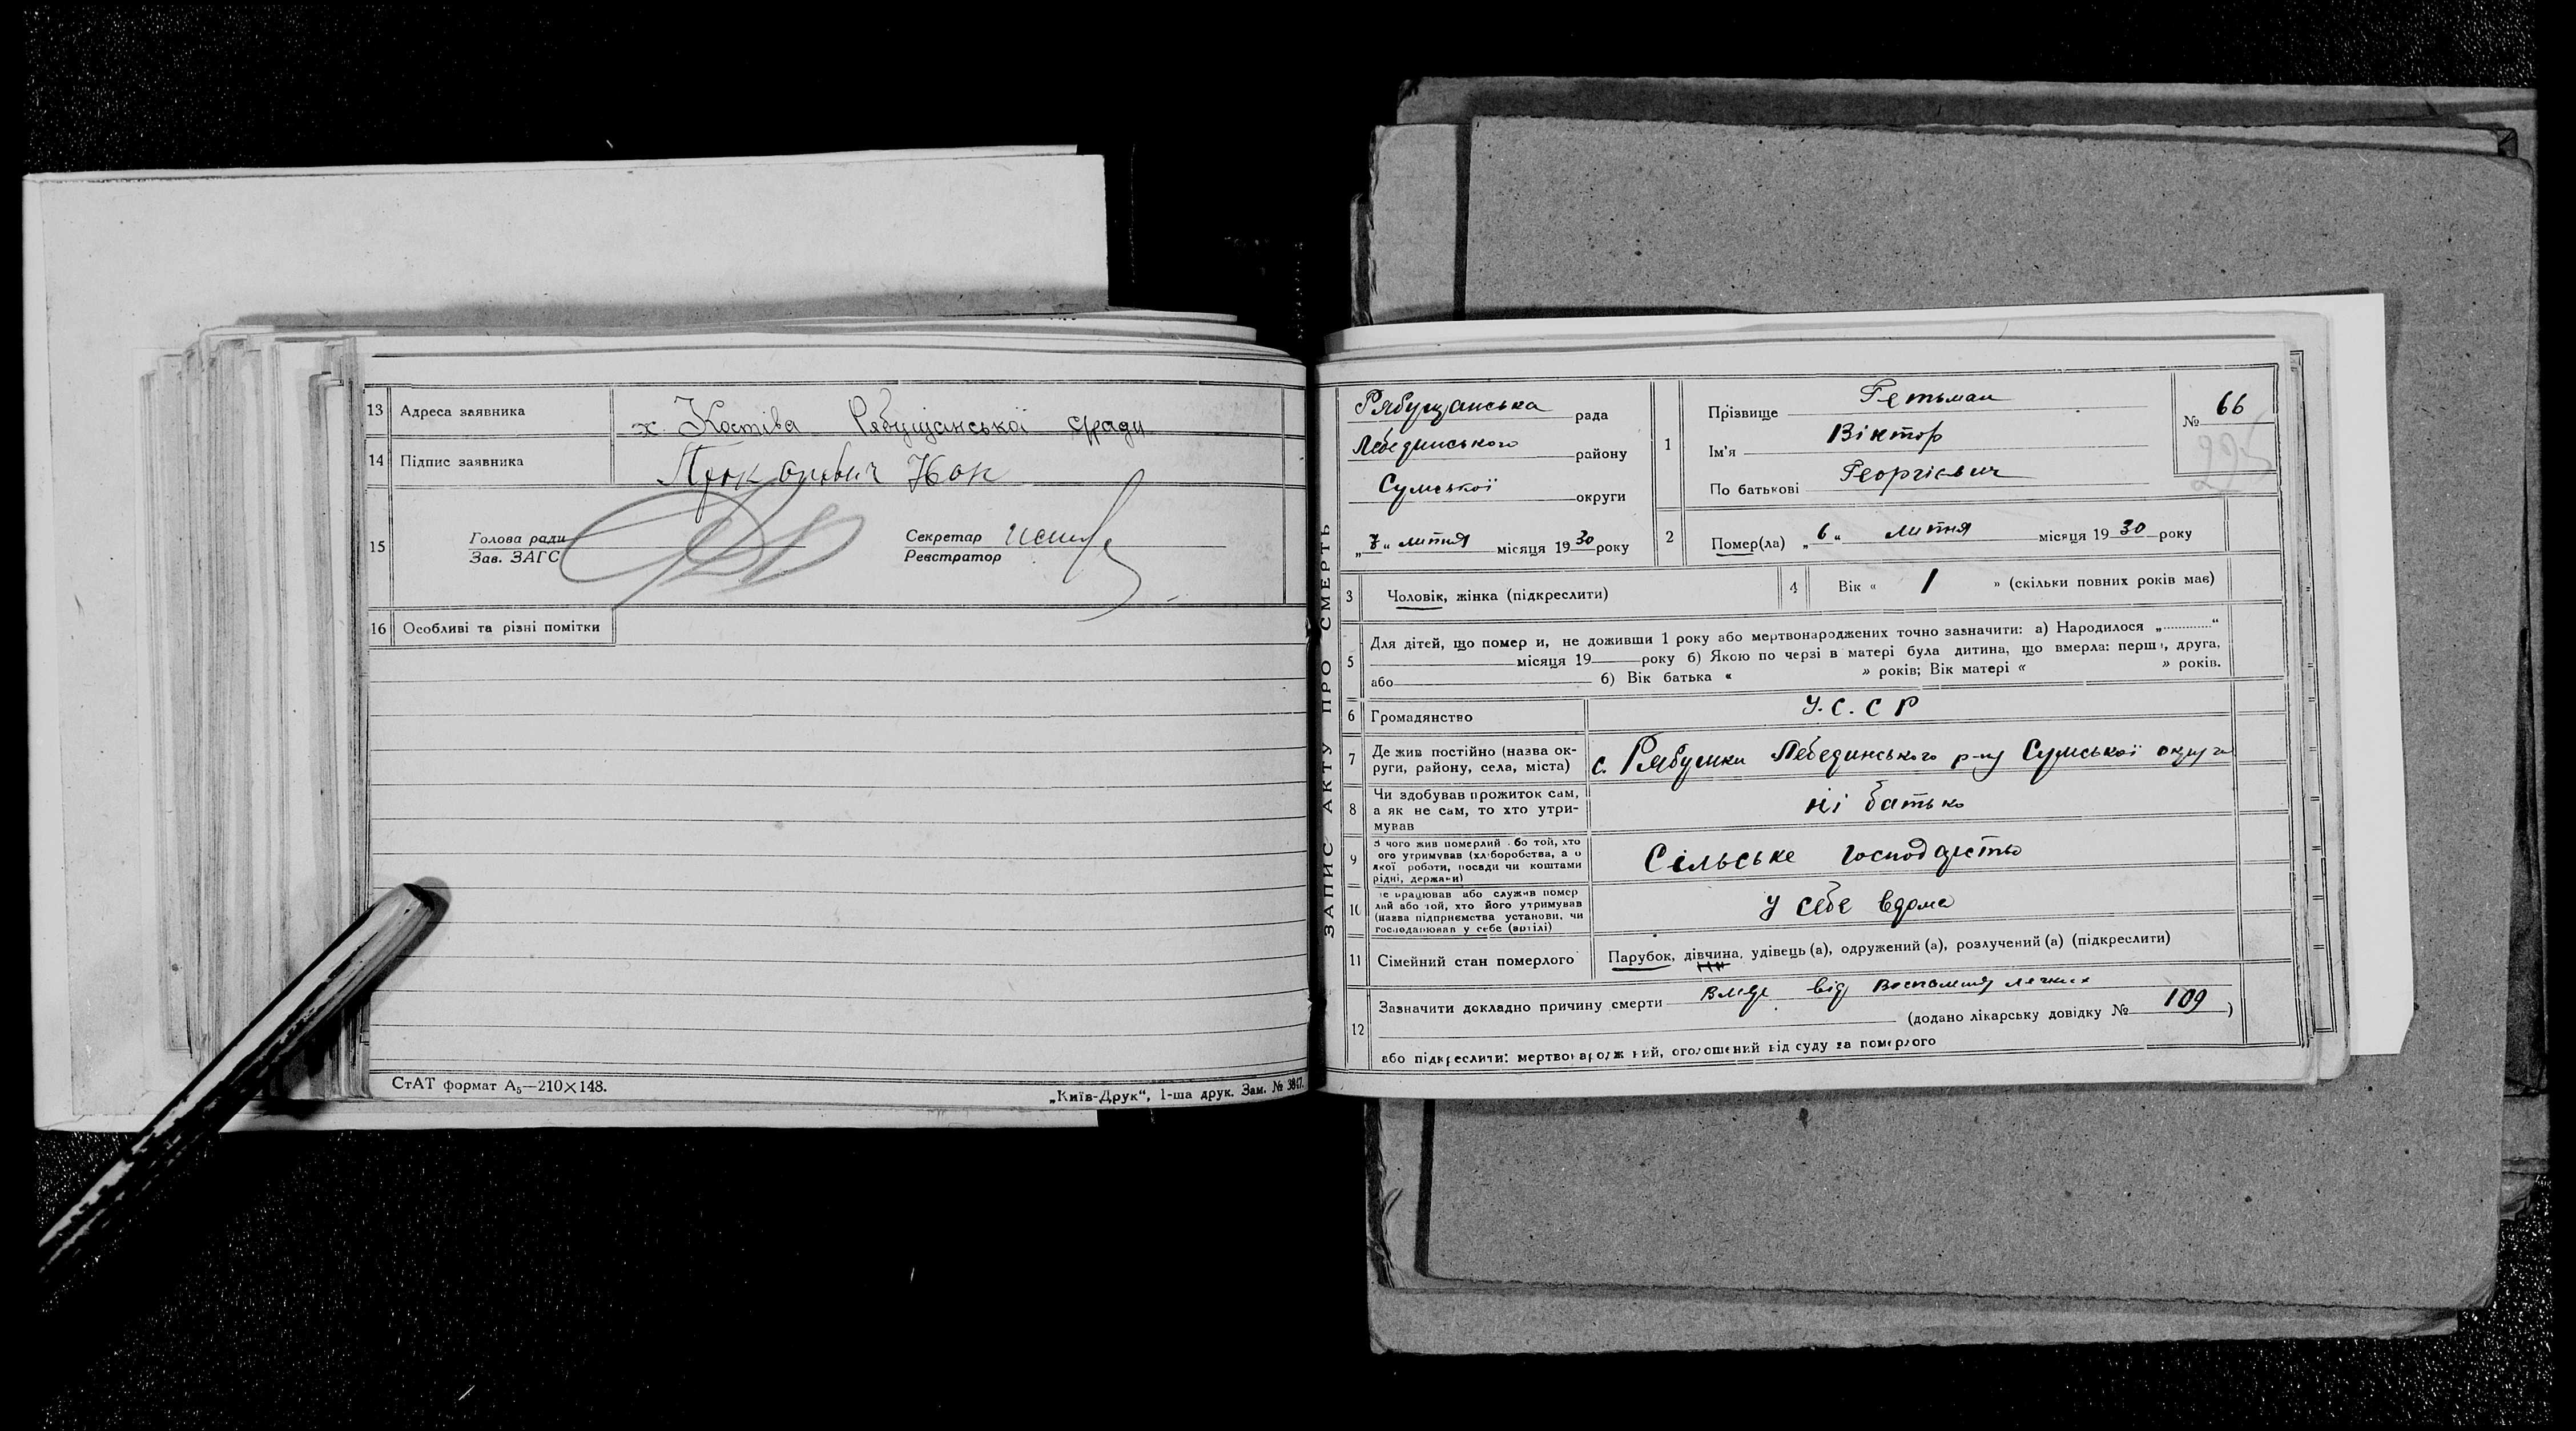 13 Адреса заявника х. Костіва Рябущанської с/ради
14 Підпис заявника
15 Голова ради
Зав. ЗАГС
Секретар
Реєстратор
16 Особливі та різні помітки
СтАТ формат А₅—210×148.
„Київ-Друк“, 1-ша друк. Зам. № 3847.
ЗАПИС АКТУ ПРО СМЕРТЬ
Рябущанська рада
Лебединського району
Сумської округи
„7“ липня місяця 1930 року
1 Прізвище Гетьман
Ім'я Віктор
По батькові Георгієвич
№ 66
2 Помер(ла) „6“ липня місяця 1930 року
3 Чоловік, жінка (підкреслити)
4 Вік « 1 » (скільки повних років має)
5 Для дітей, що помер и, не доживши 1 року або мертвонароджених точно зазначити: а) Народилося „............“
місяця 19 року б) Якою по черзі в матері була дитина, що вмерла: перш , друга,
або б) Вік батька « » років; Вік матері « » років.
6 Громадянство У.С.С Р
7 Де жив постійно (назва ок-
руги, району, села, міста) с. Рябушки Лебединського р-ну Сумської округи
8 Чи здобував прожиток сам,
а як не сам, то хто утри-
мував ні батько
9 З чого жив померлий або той, хто
його утримував (хліборобства, а о
якої роботи, посади чи коштами
рідні, держави) Сільське господарство
10 Де працював або служив помер
лий або той, хто його утримував
(назва підприємства установи, чи
господарював у себе (вдома)) у себе вдома
11 Сімейний стан померлого Парубок, дівчина, удівець (а), одружений (а), розлучений (а) (підкреслити)
12 Зазначити докладно причину смерти вмер від воспаления легких
(додано лікарську довідку № 109 )
або підкреслити: мертвонароджений, оголошений від суду за померлого